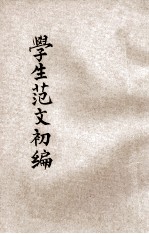 學生范文初編